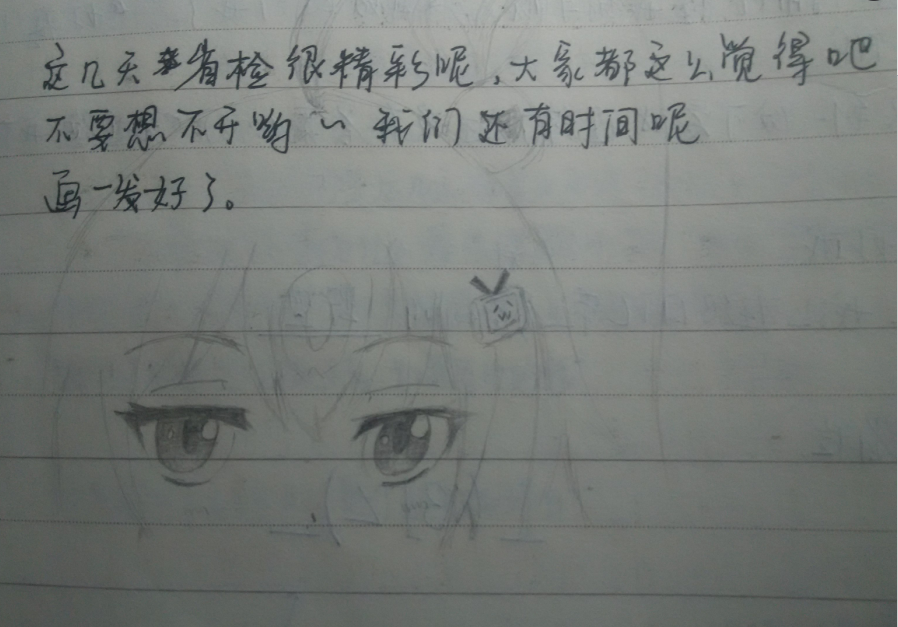 这几天省检很精彩呢，大家都这么觉得吧
不要想不开哟～我们还有时间呢
画一发好了。